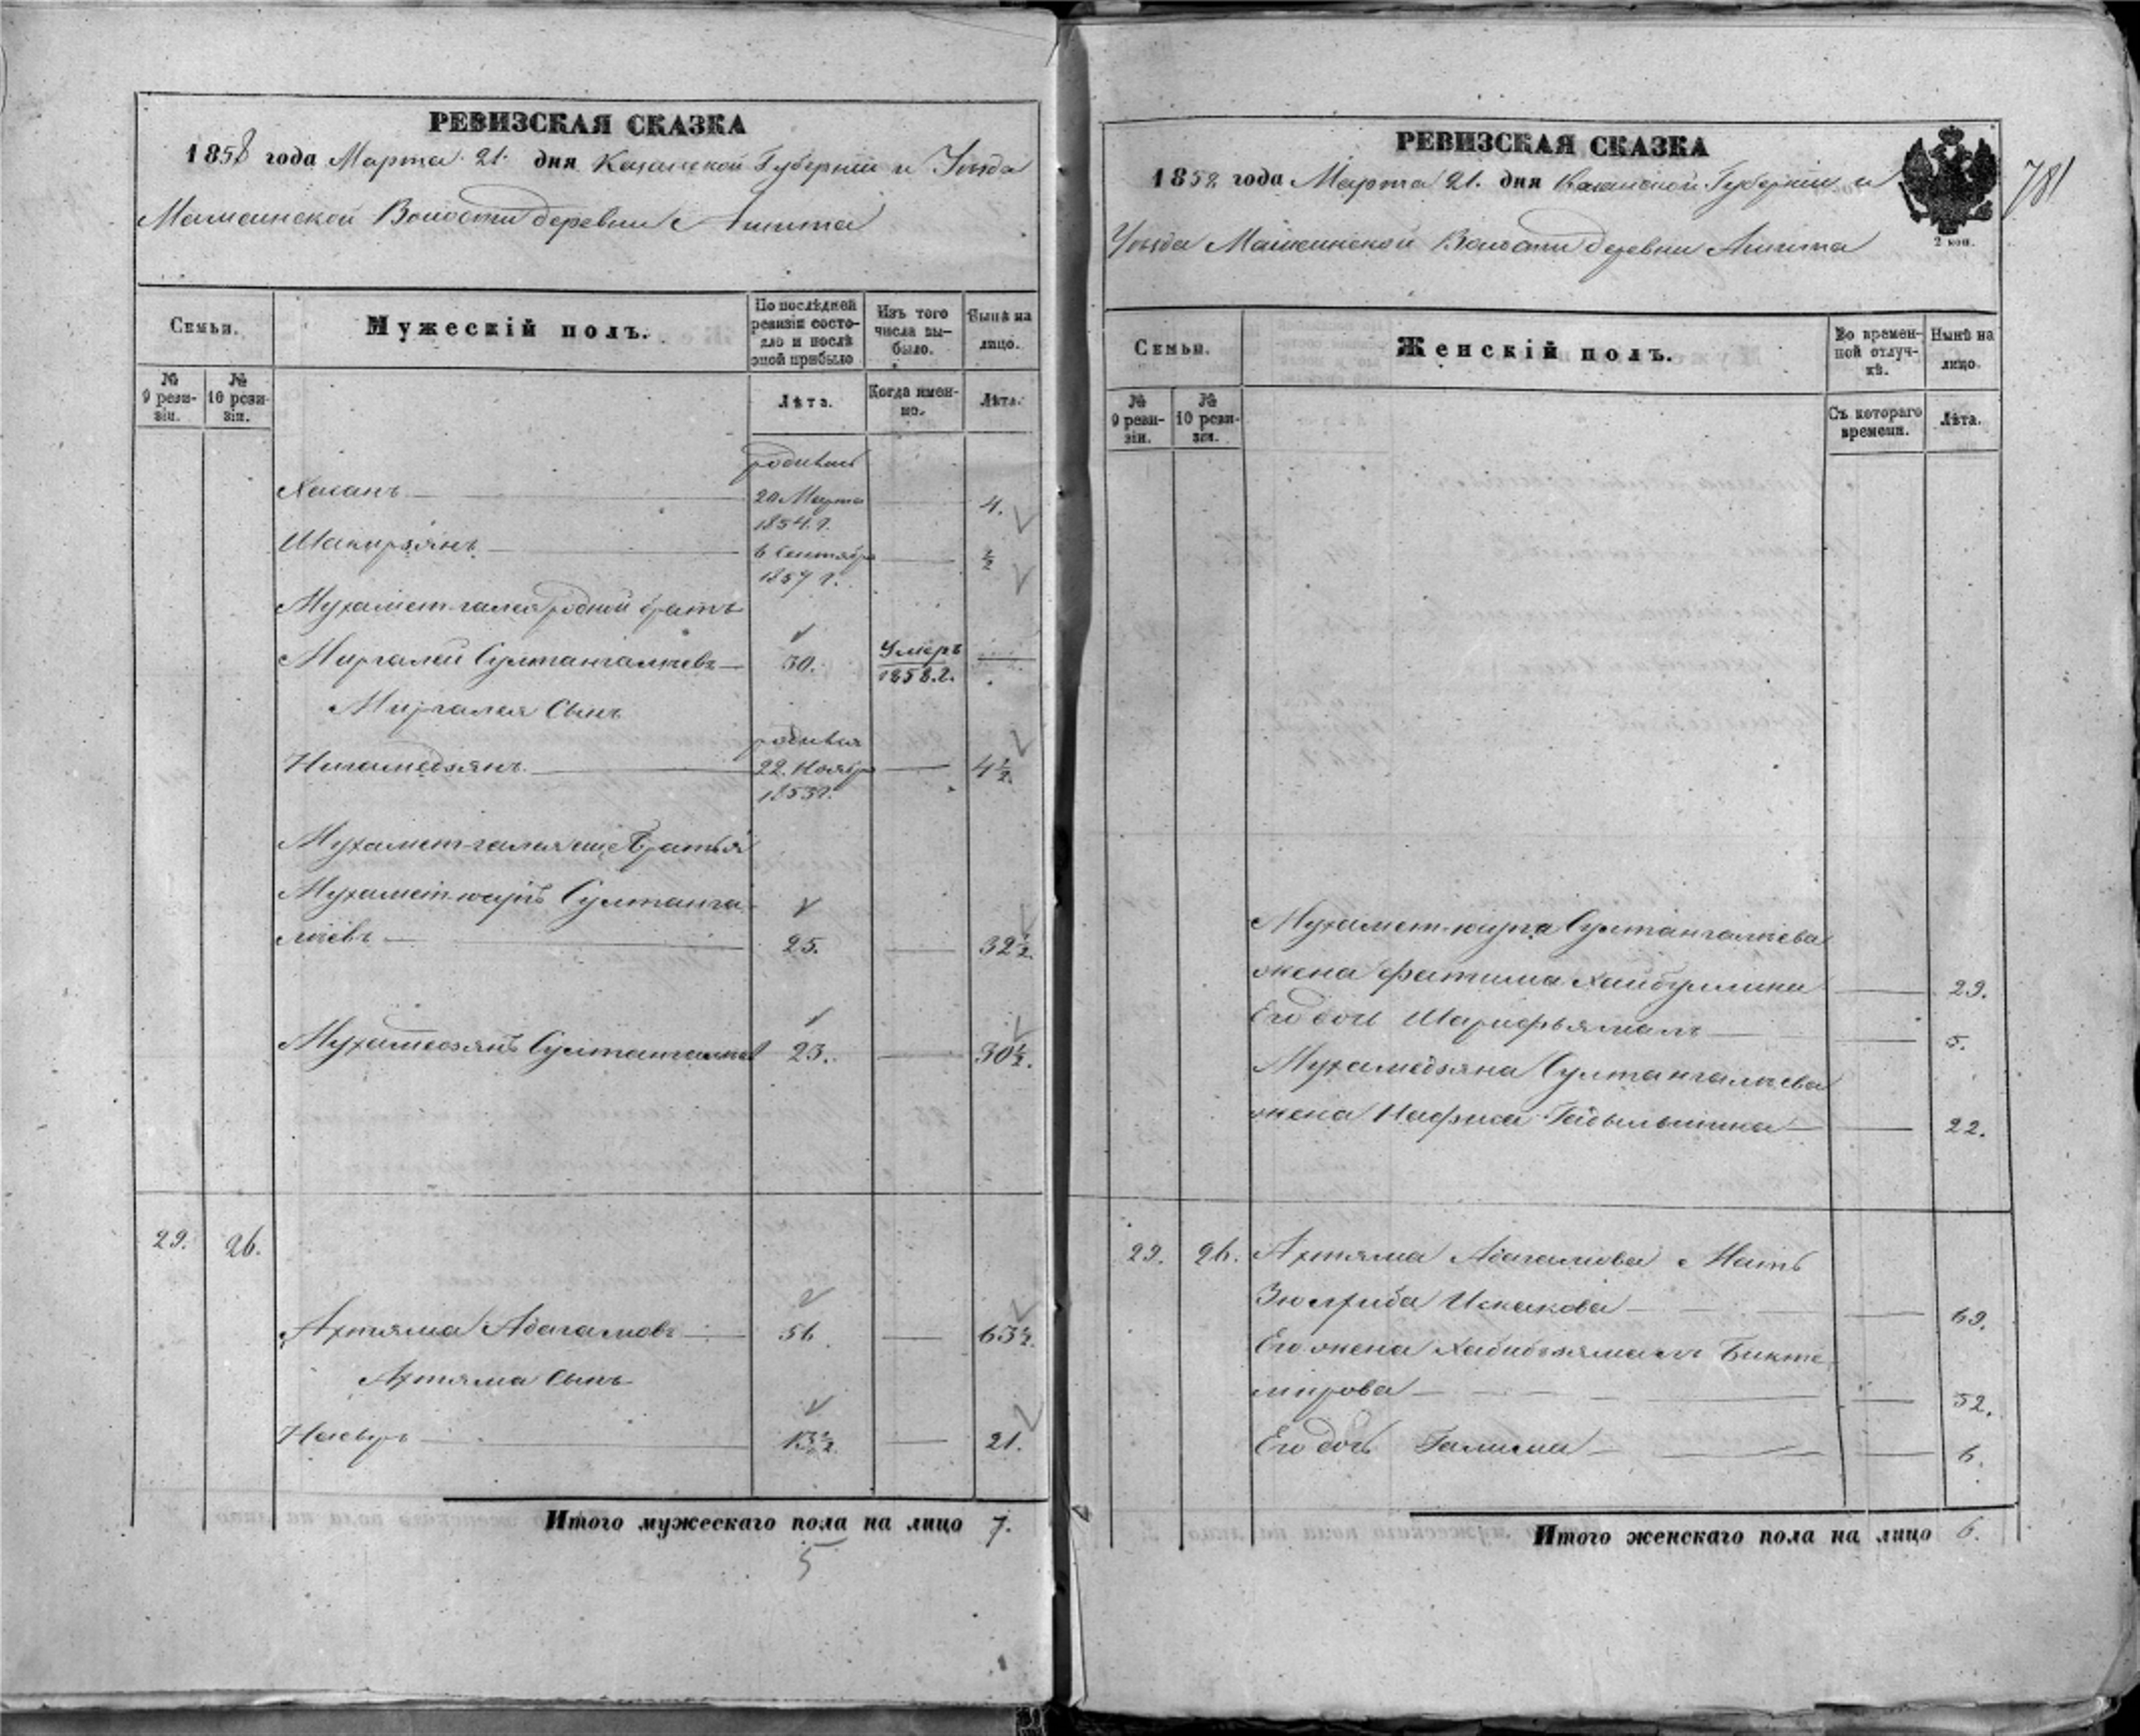 РЕВИЗСКАЯ СКАЗКА
1858 года Марта 21. дня Казанской Губерніи и Уѣзда
Мамсинской Волости деревни Ашита
Семьи.
Мужескій полъ.
По послѣдней ревизіи состояло и послѣ оной прибыло
Изъ того числа выбыло.
Нынѣ на лицо.
№ 9 ревизіи.
№ 10 ревизіи.
Лѣта.
Когда именно.
Лѣта.
родился
Хасанъ 20 Марта 4.
1854. г.
Шакирзянъ 6 Сентября ½
1857 г.
Мухамет-галея родной братъ
Миргалей Султангалѣевъ 30. Умеръ 1858. г.
Миргалея Сынъ
родился
Нигамедзянъ 22. Ноября 4½.
1853 г.
Мухамет-галея еще Братья
Мухамет-юсупъ Султанга
лѣевъ 25. 32½.
Мухамедзянъ Султангалѣев 23. 30½.
29. 26.
Ахтяма Абдагамовъ 56 63½.
Ахтяма Сынъ
13½ 21.
Итого мужескаго пола на лицо 7.
5
РЕВИЗСКАЯ СКАЗКА
1858 года Марта 21. дня Казанской Губерніи и
Уѣзда Мамсинской Волости деревни Ашита
2 коп.
781
Семьи.
Женскій полъ.
Во временной отлучкѣ.
Нынѣ на лицо.
№ 9 ревизіи.
№ 10 ревизіи.
Съ котораго времени.
Лѣта.
Мухамет-юсупа Султангалѣева
жена Фатима Хайбуллина 29.
Его дочь Шарифьямалъ 5.
Мухамедзяна Султангалѣева
жена Нафиса 22.
29. 26. Ахтяма Абдагамова Мать
Искакова 69.
Его жена Хабибзямалъ Бикте-
мирова 52.
Его дочь Галима 6.
Итого женскаго пола на лицо 6.